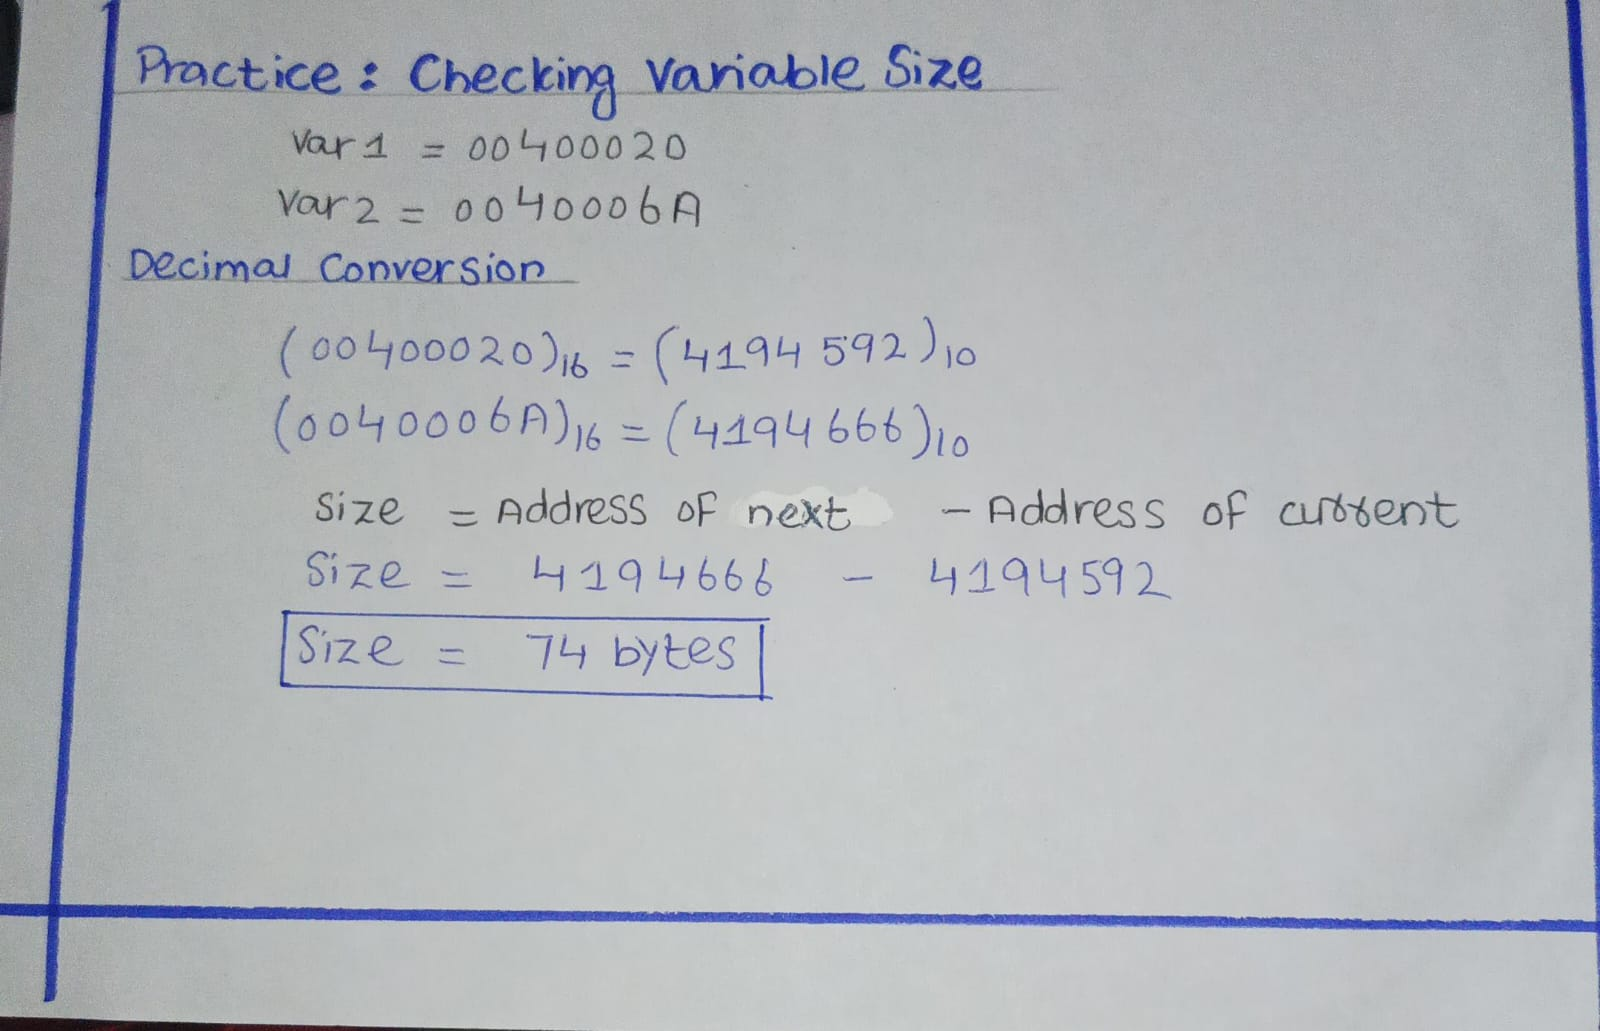 Practice : Checking Variable Size
Var 1 = 00400020
Var 2 = 0040006A
Decimal Conversion
(00400020)16 = (4194592)10
(0040006A)16 = (4194666)10
Size = Address of next - Address of current
Size = 4194666 - 4194592
Size = 74 bytes